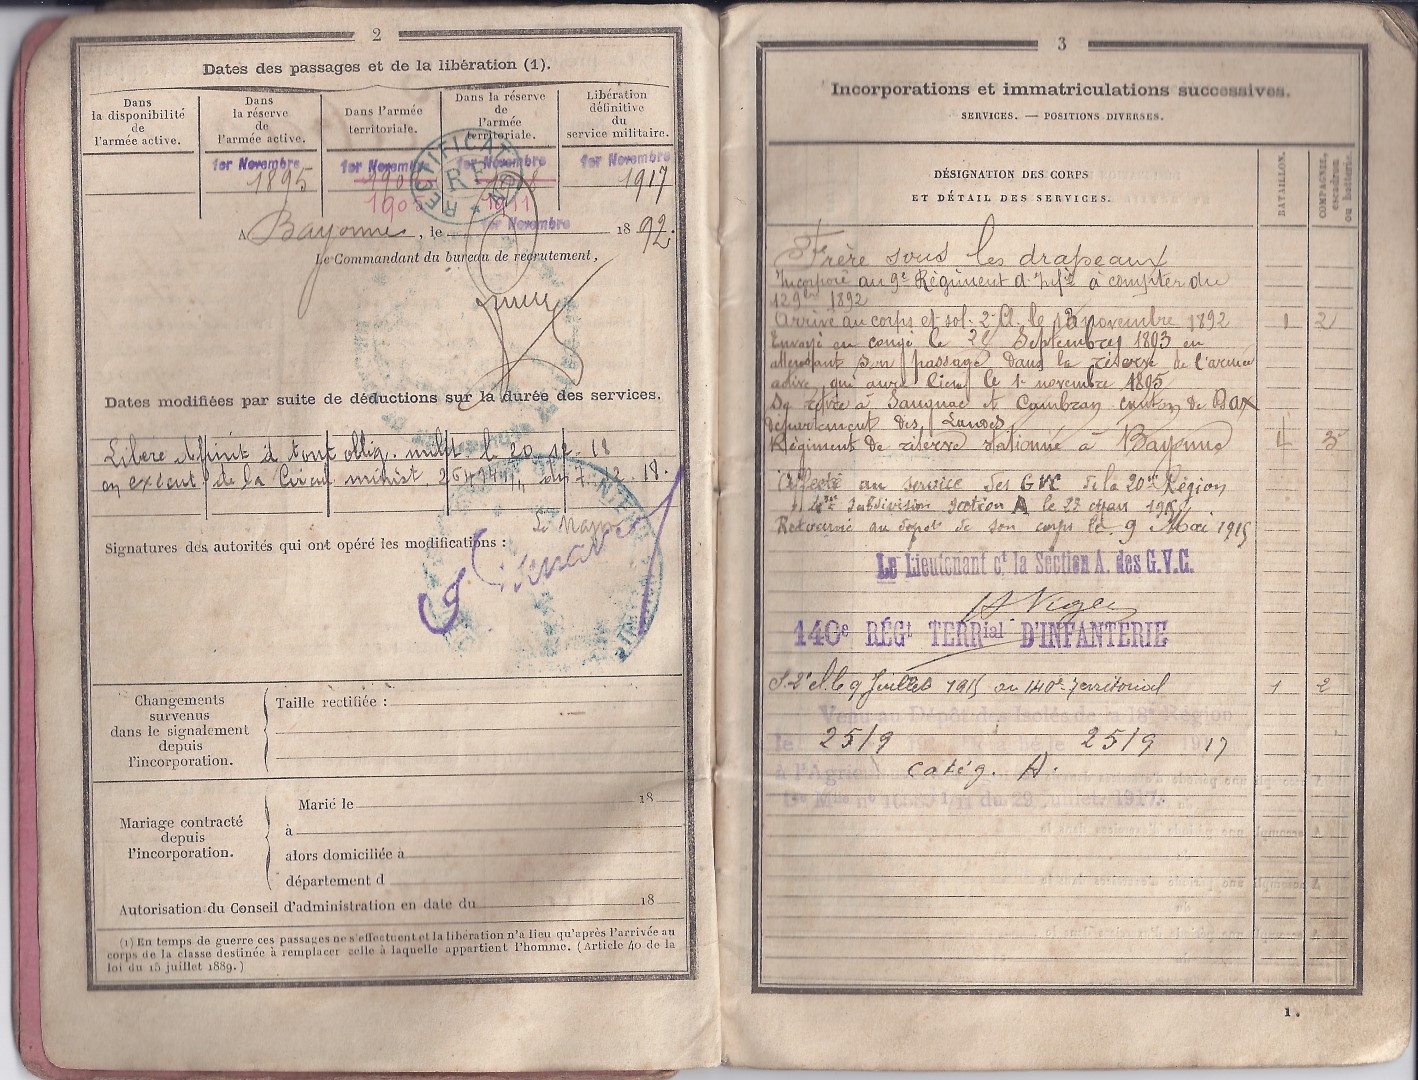 2
Dates des passages et de la libération (1).
Dans
la disponibilité
de
l'armée active.
Dans
la réserve
de
l'armée active.
Dans l'armée
territoriale.
Dans la réserve
de
l'armée
territoriale.
Libération
définitive
du
service militaire.
1er Novembre
1895
1er Novembre
1905
1er Novembre
1911
1er Novembre
1917
RECTIFICATION
RF
A Bayonne, le 1er Novembre 1892.
Le Commandant du bureau de recrutement,
Dates modifiées par suite de déductions sur la durée des services.
Libéré définit d tout oblig. milit. le 20-12-18
en exécut de la Circul minist. du 7.2.18.
Le Major
Signatures des autorités qui ont opéré les modifications :
Changements
survenus
dans le signalement
depuis
l'incorporation.
Taille rectifiée :
Mariage contracté
depuis
l'incorporation.
Marié le 18
à
alors domiciliée à
département d
Autorisation du Conseil d'administration en date du 18
(1) En temps de guerre ces passages ne s'effectuent et la libération n'a lieu qu'après l'arrivée au
corps de la classe destinée à remplacer celle à laquelle appartient l'homme. (Article 40 de la
loi du 15 juillet 1889.)
3
Incorporations et immatriculations successives.
SERVICES. — POSITIONS DIVERSES.
DÉSIGNATION DES CORPS
ET DÉTAIL DES SERVICES.
BATAILLON.
COMPAGNIE,
escadron
ou batterie.
Frère sous les drapeaux
Incorporé au 9e Régiment d'Infie à compter du
12 9bre 1892
Arrivé au corps et sol. 2e Cl. le 13 novembre 1892 1 2
Envoyé en congé le 24 Septembre 1893 en
attendant son passage dans la réserve de l'armée
active, qui aura lieu le 1er novembre 1895
Se retire à Saugnac et Cambran canton de Dax
département des Landes
Régiment de réserve stationné à Bayonne 4 3
Affecté au service des GVC de la 20me Région
Subdivision Section A le 23 mars
Retourné au dépôt de son corps le 9 Mai 1915
Le Lieutenant ct la Section A. des G.V.C.
140e RÉGt TERRial D'INFANTERIE
S. 2e Cl. le 9 Juillet 1915 au 140e Territorial 1 2
Venu au Dépôt des Isolés de la 18e Région
le 25/9 le 25/9 1917
à l'Agri catég. A.
du 29 Juillet 1917.
1.